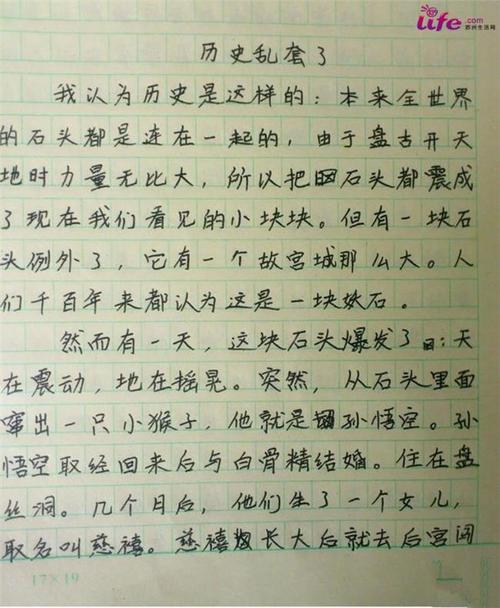 life.com
苏州生活网
历史乱套了
我认为历史是这样的：本来全世界
的石头都是连在一起的，由于盘古开天
地时力量无比大，所以把石头都震成
了现在我们看见的小块块。但有一块石
头例外了，它有一个故宫城那么大。人
们千百年来都认为这是一块妖石。
然而有一天，这块石头爆发了：天
在震动，地在摇晃。突然，从石头里面
窜出一只小猴子，他就是孙悟空。孙
悟空取经回来后与白骨精结婚。住在盘
丝洞。几个月后，他们生了一个女儿，
取名叫慈禧。慈禧长大后就去后宫闯
17×19